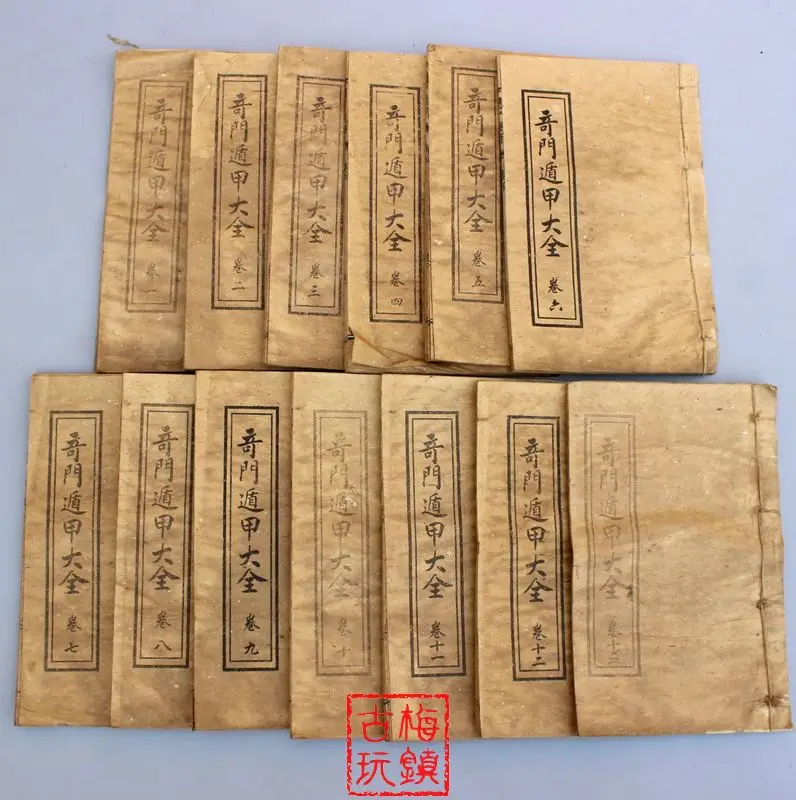 竒門遁甲大全 卷一
竒門遁甲大全 卷二
竒門遁甲大全 卷三
竒門遁甲大全 卷四
竒門遁甲大全 卷五
竒門遁甲大全 卷六
竒門遁甲大全 卷七
竒門遁甲大全 卷八
竒門遁甲大全 卷九
竒門遁甲大全 卷十
竒門遁甲大全 卷十一
竒門遁甲大全 卷十二
竒門遁甲大全
梅鎮
古玩